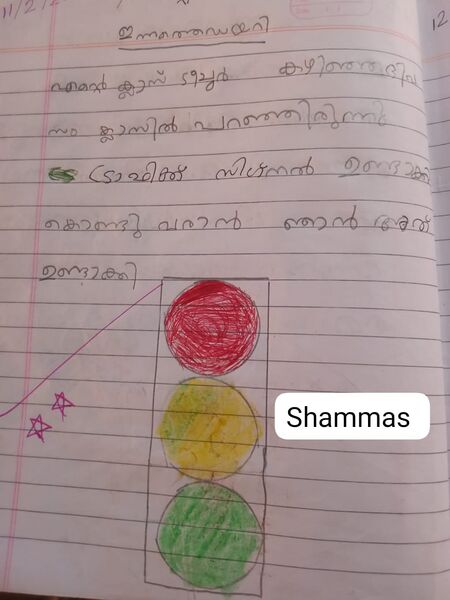 11/2/2
12
ഇന്നത്തെഡയറി
എന്റെ ക്ലാസ് ടീച്ചർ കഴിഞ്ഞദിവ
സം ക്ലാസിൽ പറഞ്ഞിരുന്നു
ട്രാഫിക്ക് സിഗ്നൽ ഉണ്ടാക്കി
കൊണ്ടു വരാൻ ഞാൻ അത്
ഉണ്ടാക്കി
Shammas